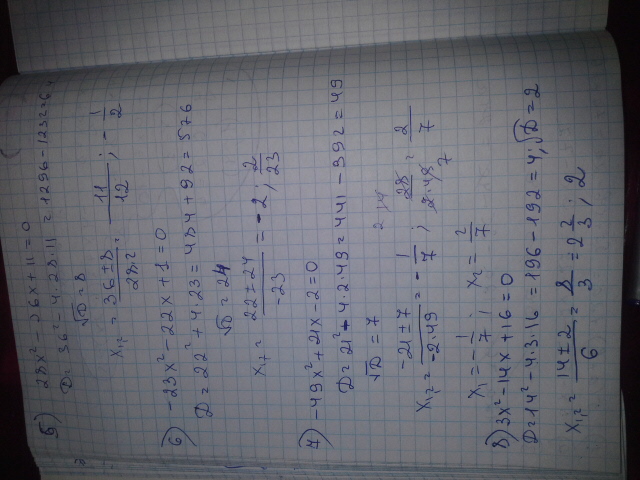 5) 28x² - 36x + 11 = 0
D = 36² - 4·28·11 = 1296 - 1232 = 6
√D = 8
x₁,₂ = (36 ± 8)/28² = 11/12 ; -1/2
6) -23x² - 22x + 1 = 0
D = 22² + 4·23 = 484 + 92 = 576
√D = 24
x₁₂ = (22 ± 24)/-23 = -2 ; 2/23
7) -49x² + 21x - 2 = 0
D = 21² - 4·2·49 = 441 - 392 = 49
√D = 7
x₁,₂ = (-21 ± 7)/(-2·49) = -1/7 ; 28/(2·49) = 2/7
x₁ = -1/7 ; x₂ = 2/7
8) 3x² - 14x + 16 = 0
D = 14² - 4·3·16 = 196 - 192 = 4, √D = 2
x₁,₂ = (14 ± 2)/6 = 8/3 = 2 2/3 ; 2